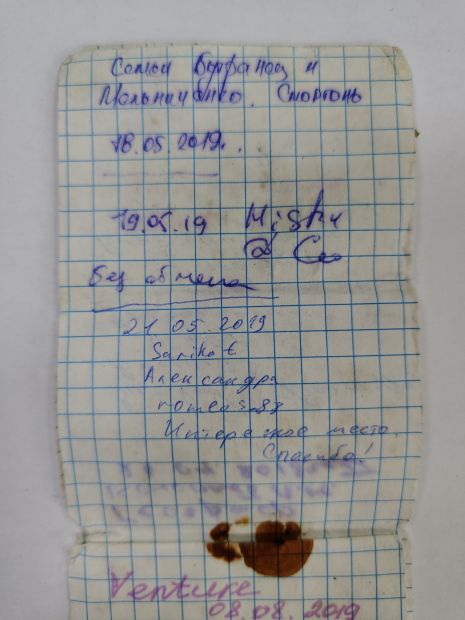 Семьи и
Мельниченко. Сморгонь
18.05.2019г.
19.05.19
& Co
без обмена
21.05.2019
Sarikat
Александра
romeas.88
Интересное место.
Спасибо!
Venture
08.08.2019